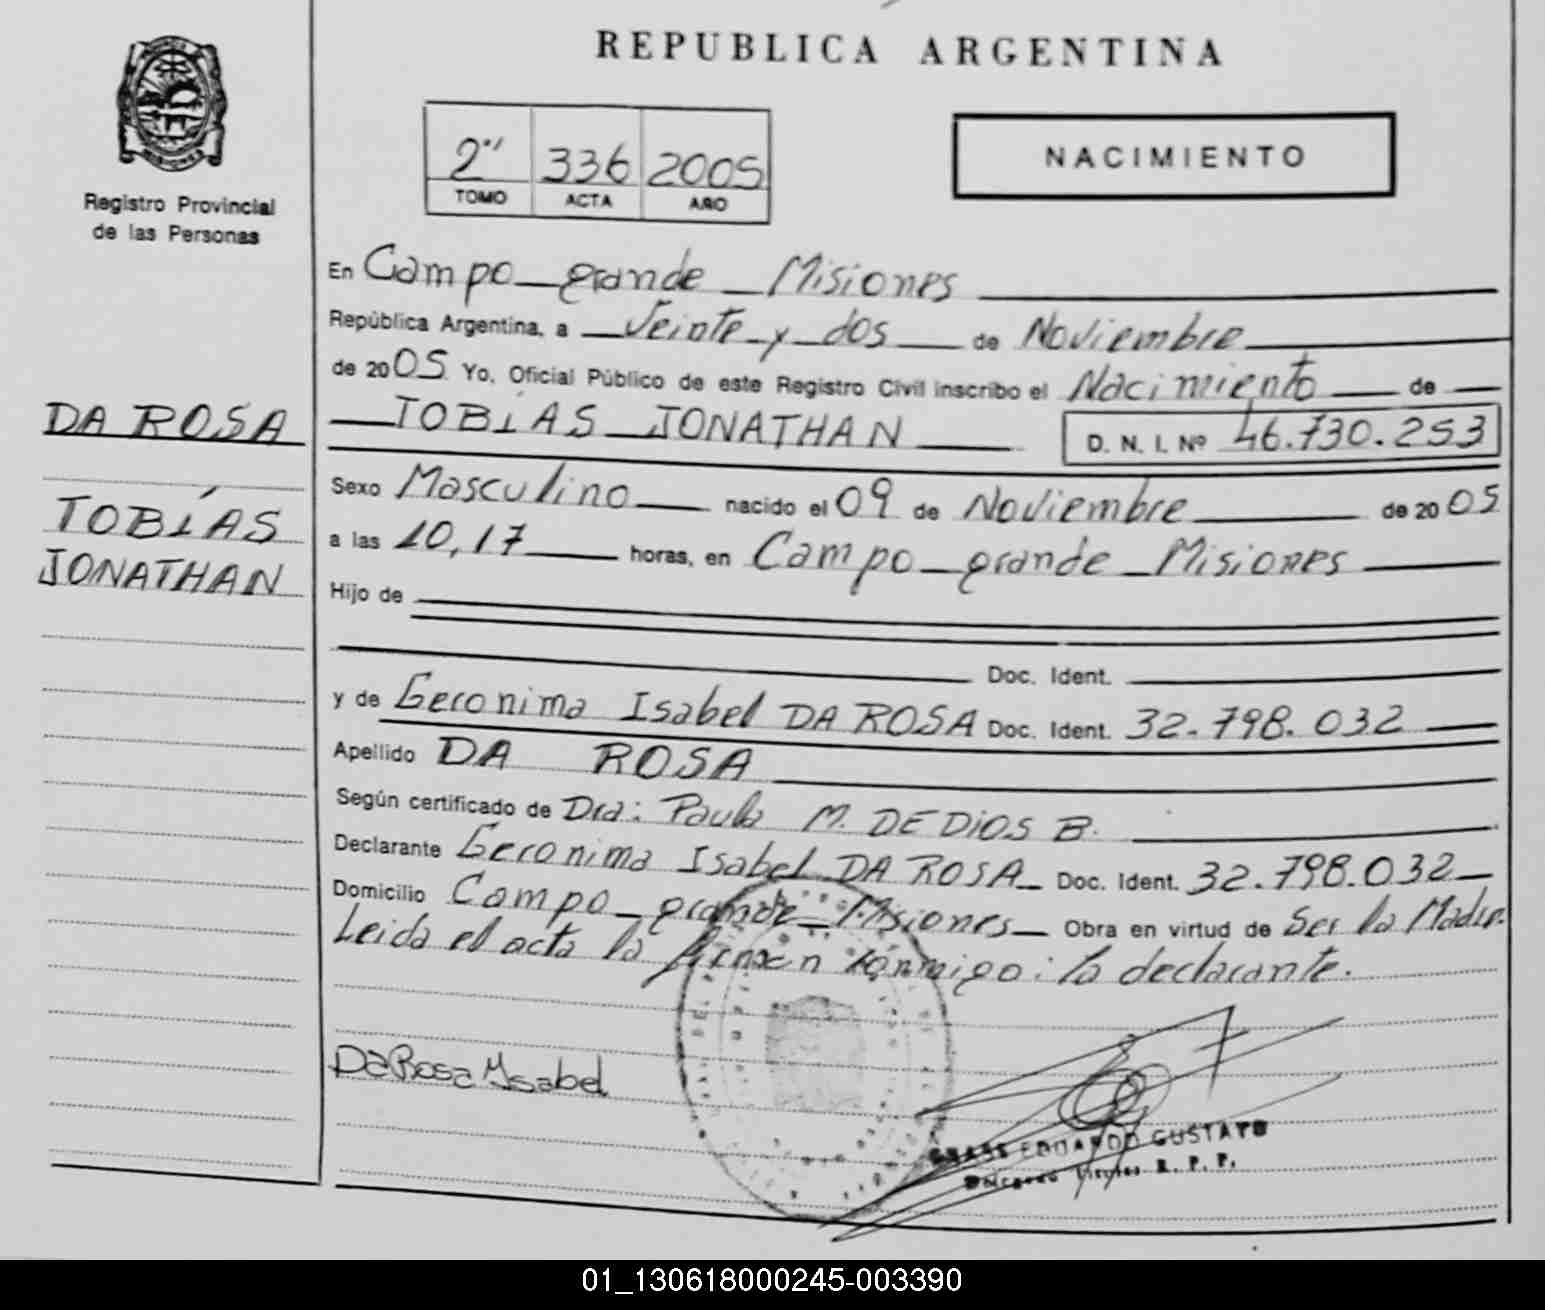 REPUBLICA ARGENTINA
2" 336 2005
TOMO ACTA AÑO
NACIMIENTO
Registro Provincial
de las Personas
DA ROSA
TOBÍAS
JONATHAN
En Campo grande Misiones
República Argentina, a Veinte y dos de Noviembre
de 2005 Yo, Oficial Público de este Registro Civil inscribo el Nacimiento de
TOBÍAS JONATHAN D. N. I. Nº 46.730.253
Sexo Masculino nacido el 09 de Noviembre de 2005
a las 10,17 horas, en Campo grande Misiones
Hijo de
Doc. Ident.
y de Geronima Isabel DA ROSA Doc. Ident. 32.798.032
Apellido DA ROSA
Según certificado de Dra: Paula M. DE DIOS B.
Declarante Geronima Isabel DA ROSA Doc. Ident. 32.798.032
Domicilio Campo grande Misiones Obra en virtud de Ser la Madre.
Leida el acta la firman conmigo: la declarante.
DaRosa Ysabel
EDUARDO GUSTAVO
R. P. P.
01_130618000245-003390